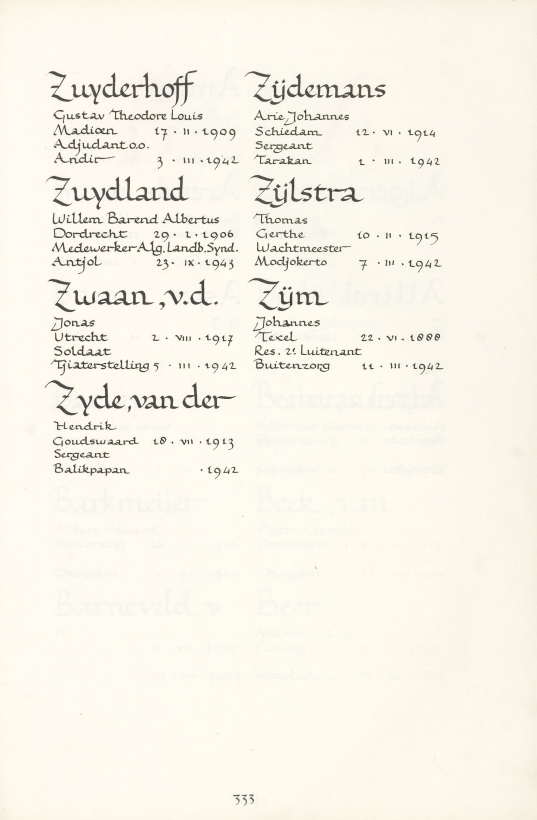 Zuyderhoff
Gustav Theodore Louis
Madioen 17 · II · 1909
Adjudant o.o.
Andir 3 · III · 1942
Zuydland
Willem Barend Albertus
Dordrecht 29 · 1 · 1906
Medewerker Alg. Landb. Synd.
Antjol 23 · IX · 1943
Zwaan, v.d.
Jonas
Utrecht 2 · VIII · 1917
Soldaat
Tjiaterstelling 5 · III · 1942
Zyde, van der
Hendrik
Goudswaard 18 · VII · 1913
Sergeant
Balikpapan · 1942
Zijdemans
Arie Johannes
Schiedam 12 · VI · 1914
Sergeant
Tarakan 1 · III · 1942
Zijlstra
Thomas
Gerthe 10 · II · 1915
Wachtmeester
Modjokerto 7 · III · 1942
Zijm
Johannes
Texel 22 · VI · 1888
Res. 2e Luitenant
Buitenzorg 11 · III · 1942
Barkmeijer
Beek, van
Barneveld, v.
Beer
333